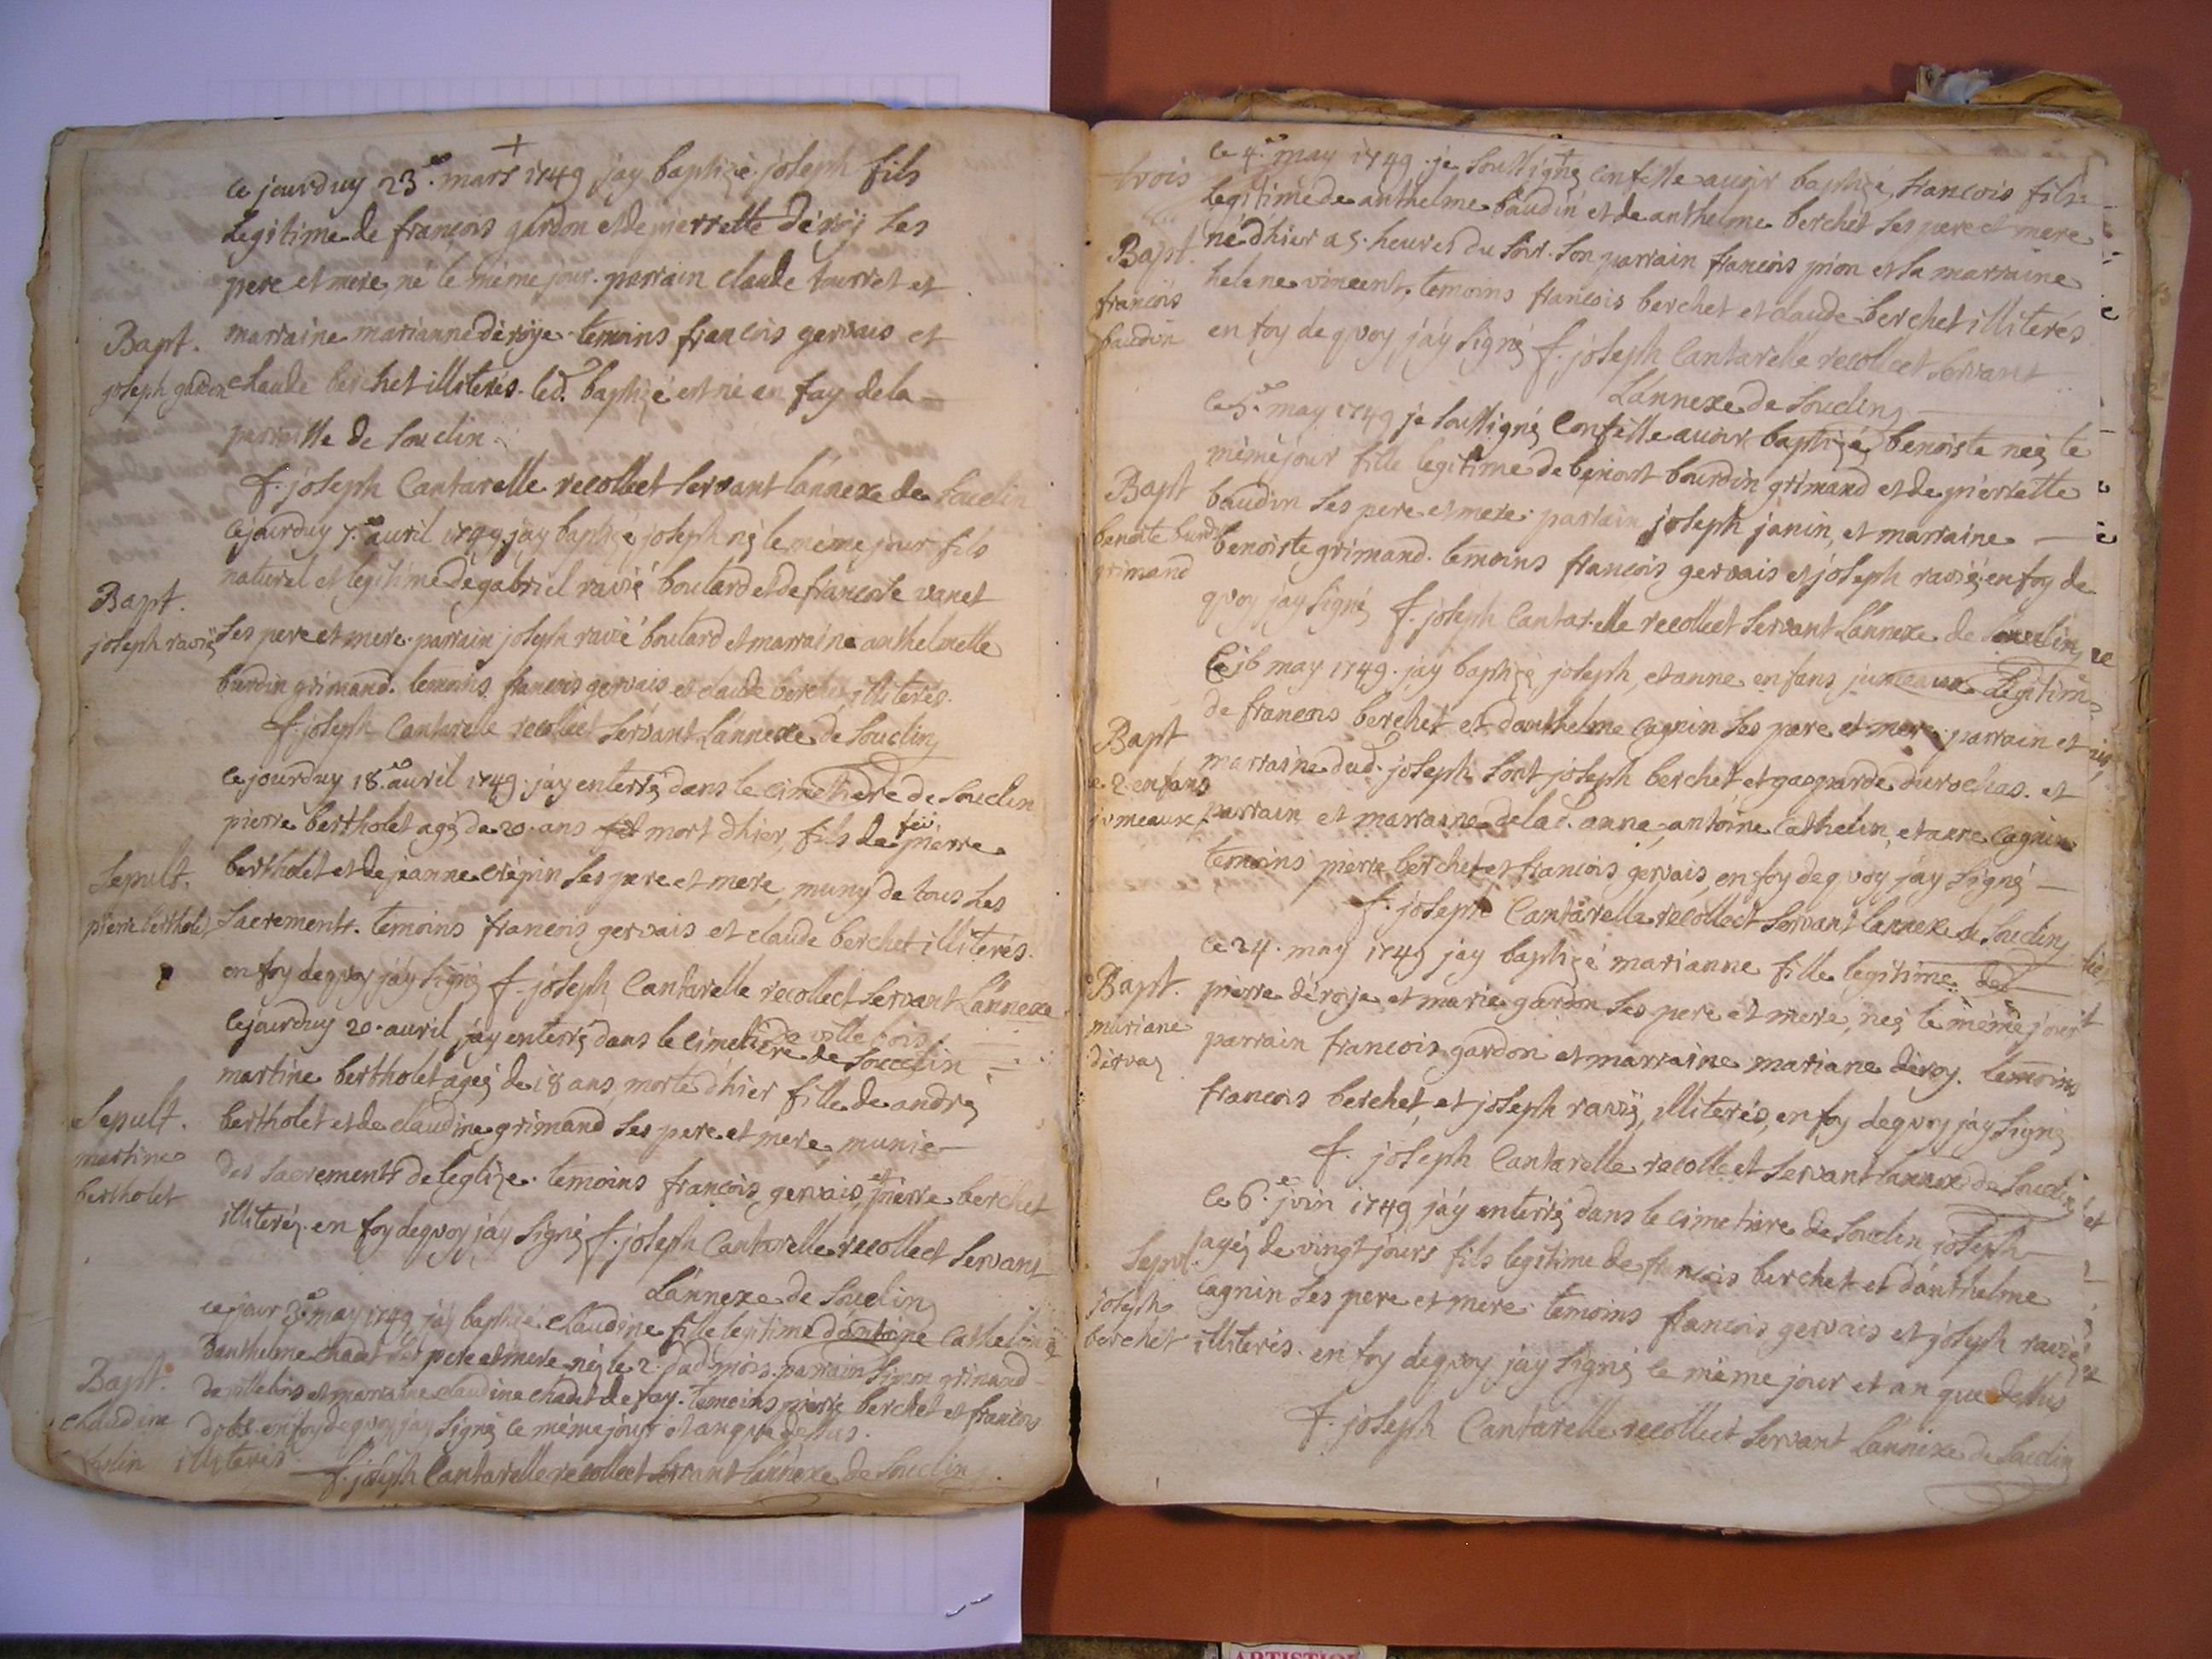 ce jourduy 23.e mars 1749 jay baptizé joseph fils
Legitime de françois gardon et de pierrette déroÿ ses
pere et mere, né le même jour. parrain claude tourret et
Bapt. marraine marianne déroÿe temoins francois gervais et
joseph gardon claude berchet illiterés. led. baptizé est né en fay de la
parroisse de Souclin
f. joseph Cantarelle recollect servant lánnexe de Souclin
Cejourduy 7.e auril 1749 jay baptizé joseph né le même jour fils
naturel et legitime de gabriel ravié boutard et de francoise vanet
Bapt.
joseph ravié ses pere et mere. parrain joseph ravié boutard et marraine anthelmette
burdin grimand. temoins francois gervais et claude berchet illiterés.
f. joseph Cantarelle recollect servant Lánnexe de Souclin
Cejourduy 18.e auril 1749. jay enterré dans le cimetiere de Souclin
pierre bertholet agé de 20. ans mort dhier, fils de feü pierre
Sepult. bertholet et de jeanne crépin ses pere et mere, muny de tous les
pierre bertholet Sacrements. temoins francois gervais et claude berchet illiterés.
en foy de quoy jáy signé f. joseph Cantarelle recollect servant Lánnexe
Cejourduy 20. auril jay enterré dans le cimetiere de Souclin
de ville bois
martine bertholet ageé de 18 ans, morte d'hier fille de andré
Sepult. bertholet et de claudine grimand ses pere et mere munie
martine des sacrements de leglize. temoins françois gervais, et pierre berchet
bertholet
illiterés. en foy de quoy jáy signé f. joseph Cantarelle recollect servant
Lánnexe de Souclin
ce jour 3.e may 1749 jáy baptizé claudine fille legitime dántoine Cathelin
Danthelme chadet ses pere et mere neé le 2. dud. mois. parrain Simon grimand
Bapt. de villebois et marraine claudine chadet de fay. temoins pierre berchet et francois
claudine en foy de quoy jay signé le même jour et an que dessus.
illiterés
f. joseph Cantarelle recollect servant lánnexe de Souclin
trois
le 4.e may 1749. je soussigné confesse auoir baptizé, francois fils
Legitime de anthelme baudin et de anthelme berchet ses pere et mere
Bapt. né dhier a 5. heures du soir. son parrain francois prion et sa marraine
francois helene vincent. temoins francois berchet et claude berchet illiterés
baudin en foy de quoy jáy signé f. joseph Cantarelle recollect servant
Lánnexe de Souclin
le 5.e may 1749 je soussigné confesse auoir baptizé benoiste neé le
même jour fille legitime de benoit bourdin grimand et de pierrette
Bapt baudin ses pere et mere. parrain joseph janin, et marraine
benoite burdin benoiste grimand. temoins francois gervais et joseph ravié, en foy de
grimand
quoy jay signé f. joseph Cantarelle recollect servant Lánnexe de Souclin
Le 16 may 1749. jay baptizé joseph, et anne enfans jumeaux Legitim
de francois berchet et danthelme Cagnin ses pere et mere. parrain et
Bapt marraine dud. joseph sont joseph berchet, et gasparde durochas. et
2 enfans
jumeaux parrain et marraine de lad. anne, antoine Cathelin, et anne Cagnin
temoins pierre berchet et francois gervais en foy de quoy jáy signé
f. joseph Cantarelle recollect servant lánnexe de Souclin
le 24. may 1749 jay baptizé marianne fille legitime de
Bapt. pierre déroÿe et marie gardon ses pere et mere, neé le même jour
mariane parrain francois gardon et marraine mariane déroy. temoins
deroy
francois berchet, et joseph ravié, illiterés, en foy de quoy jáy signé
f. joseph Cantarelle recollect servant lánnexe de Souclin
le 6.e juin 1749 jáy enterré dans le cimetiere de Souclin joseph
Sepult. ageé de vingt jours fils legitime de francois berchet et dánthelme
joseph Cagnin ses pere et mere temoins francois gervais et joseph ravié
berchet illiterés. en foy de quoy jay signé le même jour et an que dessus
f. joseph Cantarelle recollect servant Lánnexe de Souclin